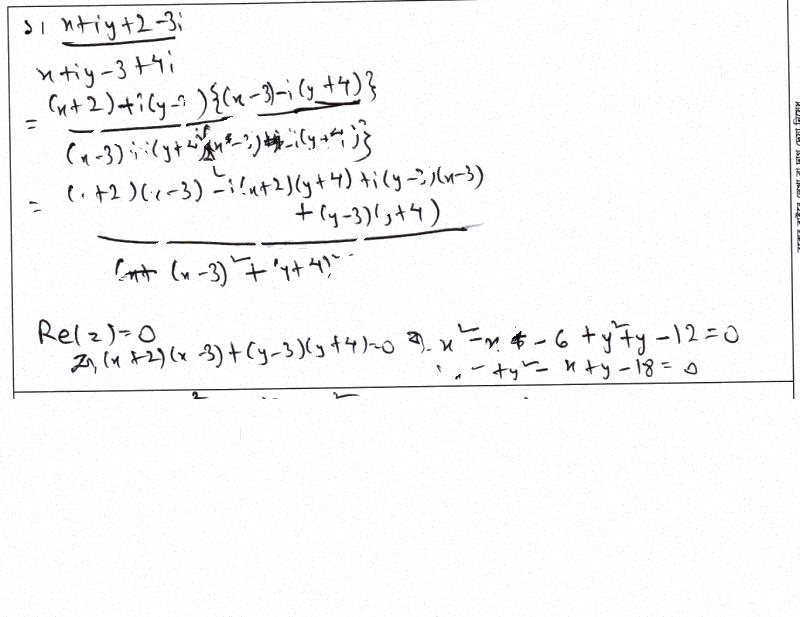 ১। x+iy+2-3i
x+iy-3+4i
= (x+2)+i(y-3){(x-3)-i(y+4)}
(x-3)+i(y+4){(x-3)-i(y+4)}
= (x+2)(x-3)-i(x+2)(y+4)+i(y-3)(x-3)
+(y-3)(y+4)
(x-3)²+(y+4)²
Re(z)=0
(x+2)(x-3)+(y-3)(y+4)=0 x²-x-6+y²+y-12=0
x²+y²-x+y-18=0